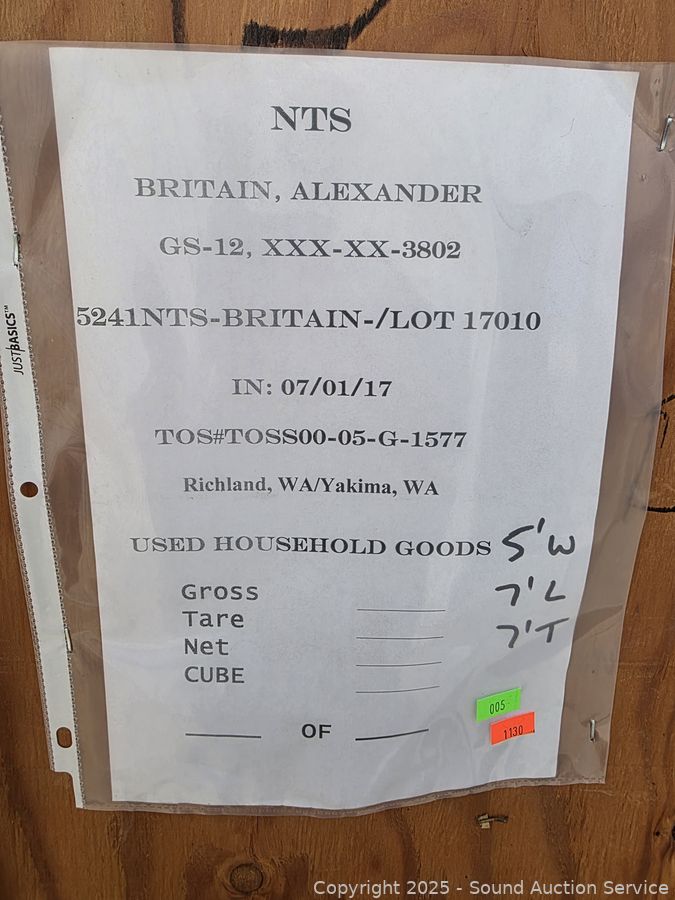 NTS
BRITAIN, ALEXANDER
GS-12, XXX-XX-3802
5241NTS-BRITAIN-/LOT 17010
IN: 07/01/17
TOS#TOSS00-05-G-1577
Richland, WA/Yakima, WA
USED HOUSEHOLD GOODS 5'W
Gross 7'L
Tare 7'T
Net
CUBE
005
OF
1130
JUSTBASICS™
Copyright 2025 - Sound Auction Service